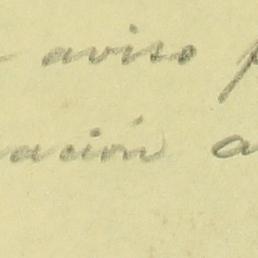 aviso p
ación a